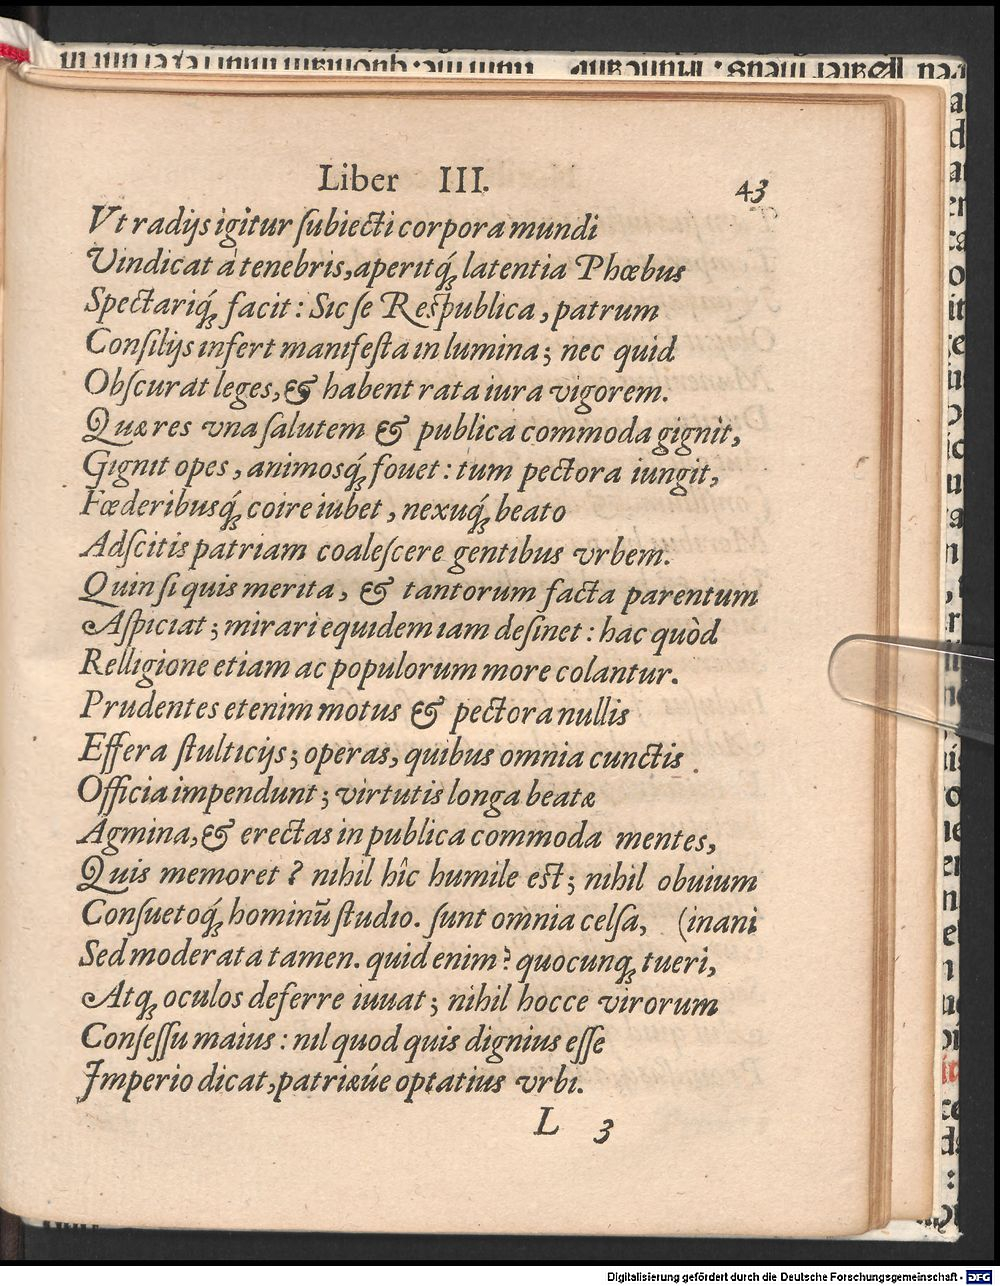 Liber III. 43
Vt radijs igitur ſubiecti corpora mundi
Vindicat à tenebris, aperitq́; latentia Phœbus
Spectariq́; facit: Sic ſe Reſpublica, patrum
Conſilijs infert manifeſta in lumina; nec quid
Obſcurat leges, & habent rata iura vigorem.
Quæ res vna ſalutem & publica commoda gignit,
Gignit opes, animosq́; fouet: tum pectora iungit,
Fœderibusq́; coire iubet, nexuq́; beato
Adſcitis patriam coaleſcere gentibus vrbem.
Quin ſi quis merita, & tantorum facta parentum
Aſpiciat; mirari equidem iam deſinet: hac quòd
Relligione etiam ac populorum more colantur.
Prudentes etenim motus & pectora nullis
Effera ſtulticijs; operas, quibus omnia cunctis
Officia impendunt; virtutis longa beatæ
Agmina, & erectas in publica commoda mentes,
Quis memoret? nihil hîc humile eſt; nihil obuium
Conſuetoq́; hominū ſtudio. ſunt omnia celſa, (inani
Sed moderata tamen. quid enim? quocunq; tueri,
Atq; oculos deferre iuuat; nihil hocce virorum
Conſeſſu maius: nil quod quis dignius eſſe
Imperio dicat, patriæúe optatius vrbi.
L 3
Digitalisierung gefördert durch die Deutsche Forschungsgemeinschaft - DFG